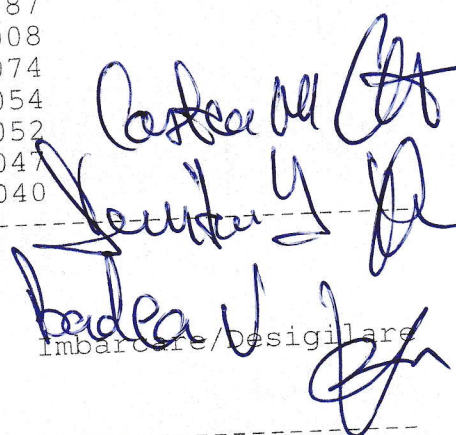 87
008
074
054
052
047
040
Costea M
Badea V
Imbarcare/Desigilare